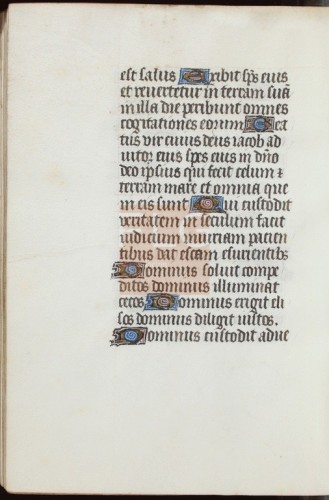 est salus Exibit sps eius
et revertetur in terram suā
in illa die peribunt omnes
cogitationes eorum Bea
tus vir cuius deus iacob ad
iutor eius spes eius in dño
deo ipsius qui fecit celum ⁊
terram mare et omnia que
in eis sunt Qui custodit
veritatem in seculum facit
iudicium iniuriam pacien
tibus dat escam esurientibs
Dominus soluit compe
ditos dominus illuminat
cecos Dominus erigit eli
sos dominus diligit iustos.
Dominus custodit adue